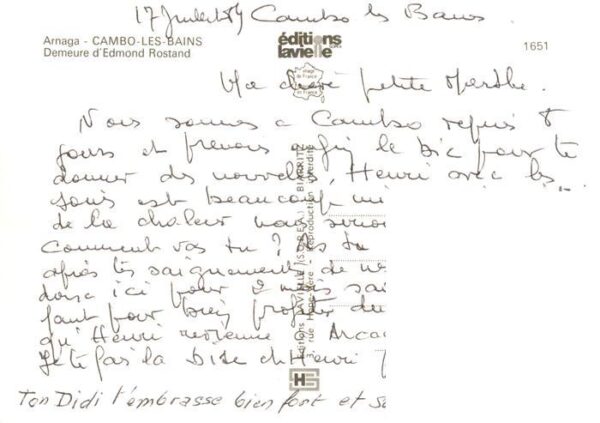 17 Juillet 89 Cambo les Bains
Arnaga - CAMBO-LES-BAINS
Demeure d'Edmond Rostand
éditions
lavielle
1651
image
de France
Ma chère petite Marthe.
Nous sommes a Cambo depuis 8
jours et prenons enfin le bic pour te
donner des nouvelles, Henri avec les
soins est beaucoup mi
de la chaleur nous
Comment vas tu? As tu
après tes saignements de n
donc ici pour 2 mois
faut pour bien profiter du
qu'Henri revienne Arca
Je te fais la bise et Henri
Ton Didi t'embrasse bien fort et
Editions LAVIELLE (S.O.R.E.A.) BIARRITZ
rue Reproduction interdite
HS